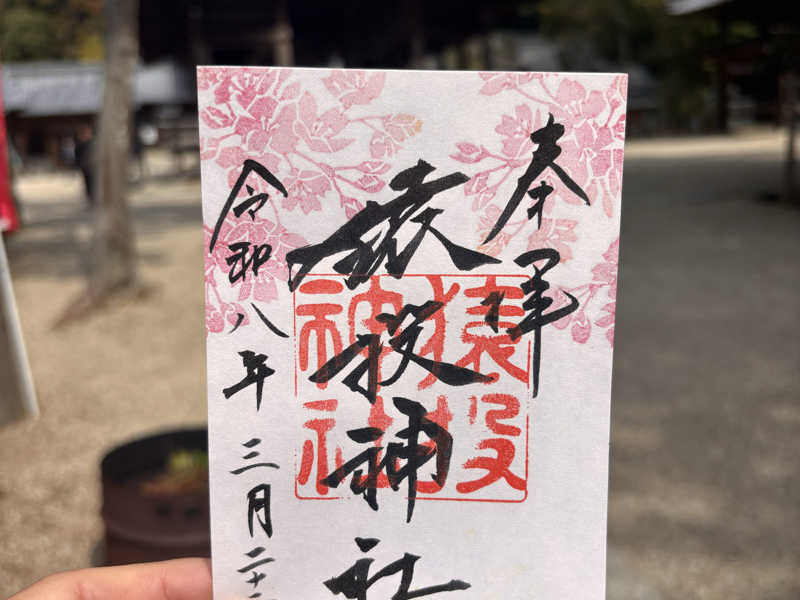 奉拝
猿投神社
猿投
神社
令和八年三月二十